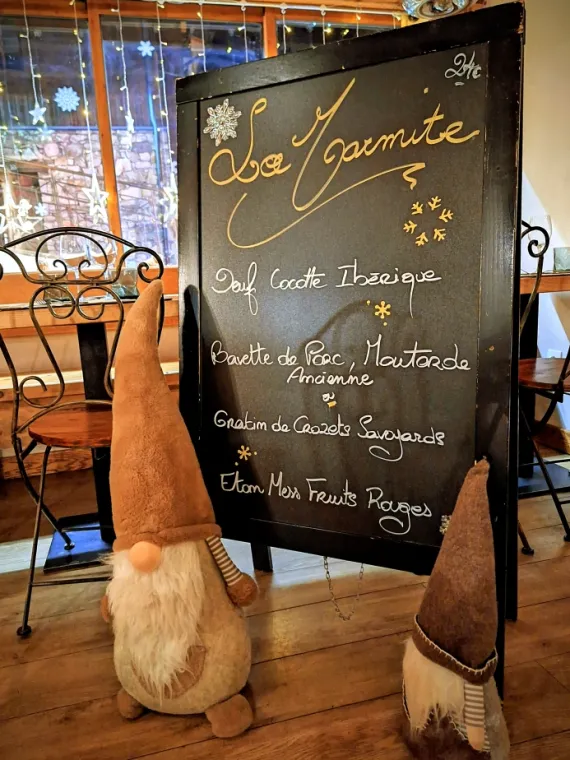 24€
La Marmite
Oeuf Cocotte Ibérique
Bavette de Porc, Moutarde
Ancienne
ou
Gratin de Crozets Savoyards
Eton Mess Fruits Rouges